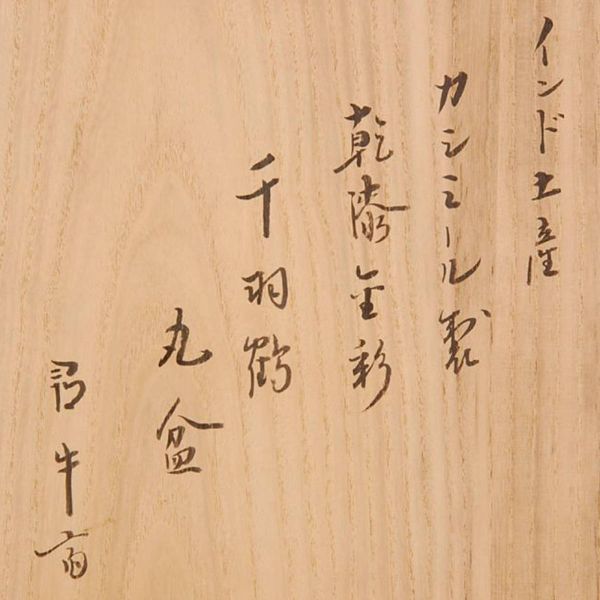 インド土産
カシミール製
乾漆金彩
千羽鶴
丸盆
尋牛斎